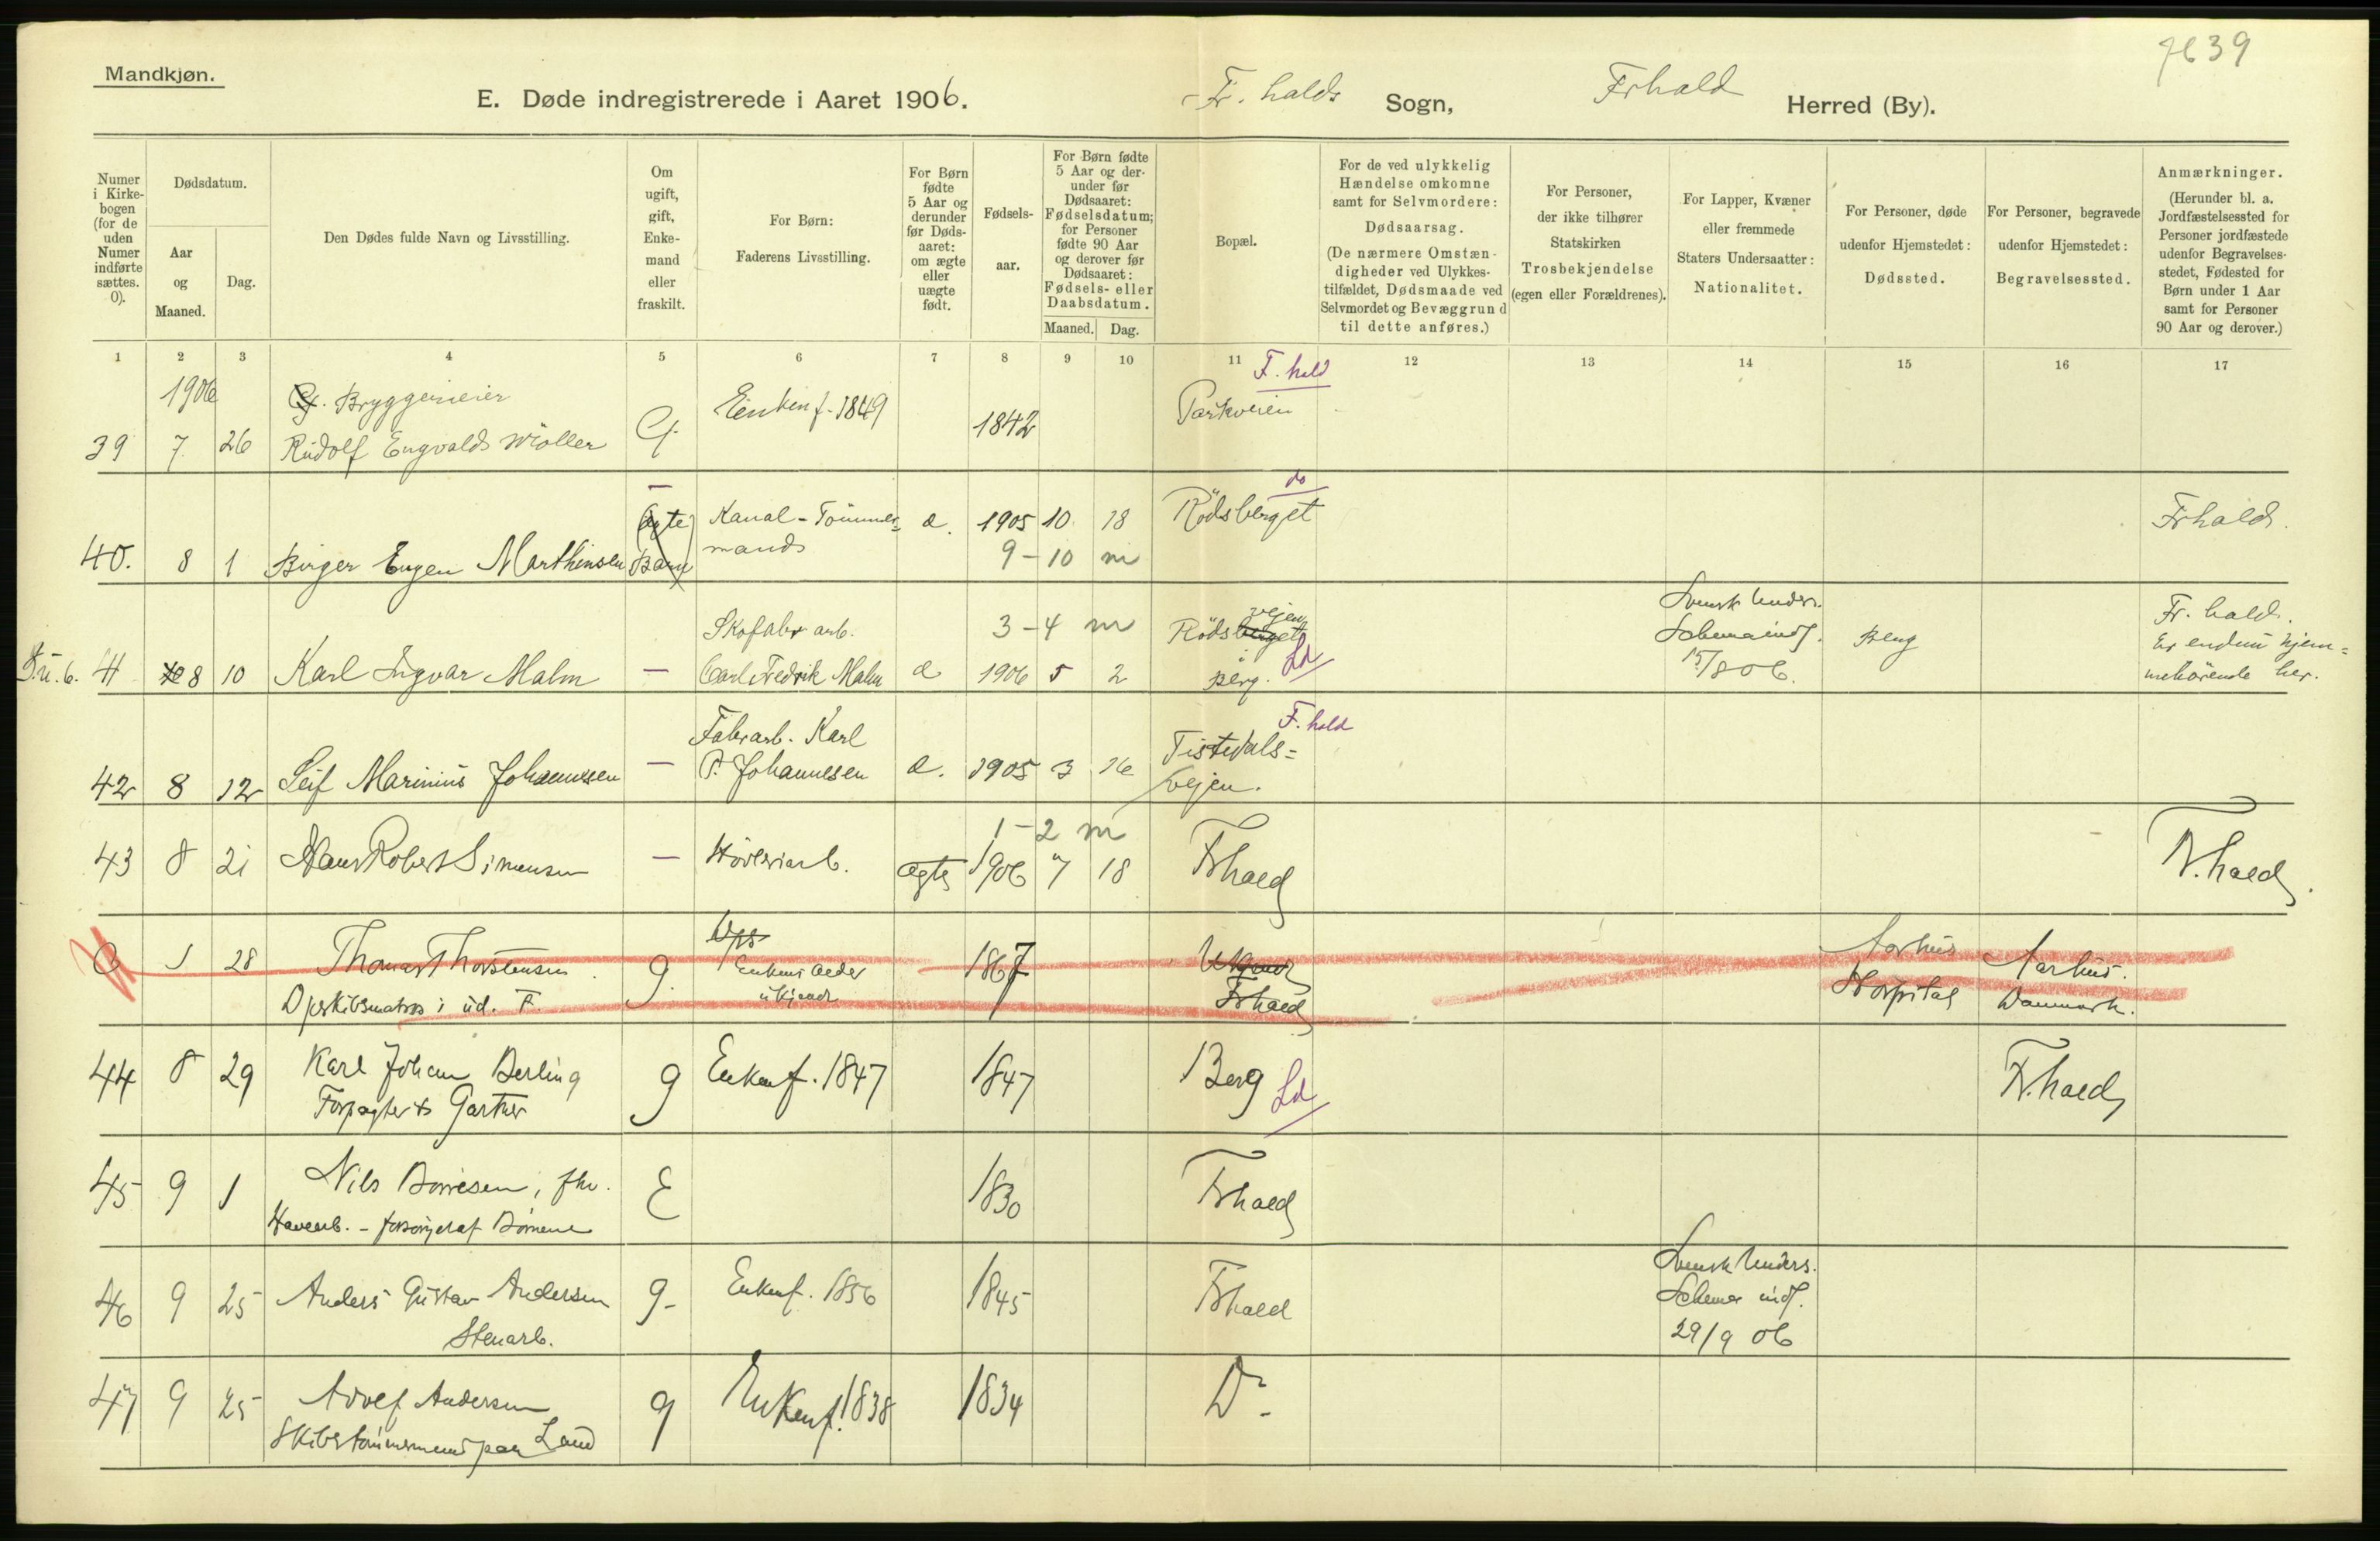 7639
Mandkjøn.
E. Døde indregistrerede i Aaret 1906.
Fr. halds Sogn, Frhald Herred (By).
Numer i Kirkebogen (for de uden Numer indførte sættes. 0).
Dødsdatum.
Aar og Maaned.
Dag.
Den Dødes fulde Navn og Livsstilling.
Om ugift, gift, Enkemand eller fraskilt.
For Børn: Faderens Livsstilling.
For Børn fødte 5 Aar og derunder før Dødsaaret: om ægte eller uægte født.
Fødselsaar.
For Børn fødte 5 Aar og derunder før Dødsaaret: Fødselsdatum; for Personer fødte 90 Aar og derover før Dødsaaret: Fødsels- eller Daabsdatum.
Maaned. Dag.
Bopæl.
For de ved ulykkelig Hændelse omkomne samt for Selvmordere: Dødsaarsag. (De nærmere Omstændigheder ved Ulykkestilfældet, Dødsmaade ved Selvmordet og Bevæggrund til dette anføres.)
For Personer, der ikke tilhører Statskirken Trosbekjendelse (egen eller Forældrenes).
For Lapper, Kvæner eller fremmede Staters Undersaatter: Nationalitet.
For Personer, døde udenfor Hjemstedet: Dødssted.
For Personer, begravede udenfor Hjemstedet: Begravelsessted.
Anmærkninger. (Herunder bl. a. Jordfæstelsessted for Personer jordfæstede udenfor Begravelsesstedet, Fødested for Børn under 1 Aar samt for Personer 90 Aar og derover.)
1 2 3 4 5 6 7 8 9 10 11 12 13 14 15 16 17
1906 Bryggerieier Enken f. 1849 F. hald
39 7 26 Rudolf Engvalds Møller G. 1842 Parkveien
Ægte Kanal-Tømmer= do
40. 8 1 Birger Eugen Marthinsen Barn mands æ. 1905 10 18 Rödsberget Frhald.
9-10 m
Skofabr arb. 3-4 m Rödsberget vejen Svensk Unders. Fr. hald.
41 8 10 Karl Ingvar Malm — Carl Fredrik Malm æ 1906 5 2 i Berg. Ld Schema indf. 15/8 06. Berg Er endnu hjem=
mehörende her.
Fabrarb. Karl F. hald
42 8 12 Leif Marinius Johannesen — P. Johannesen æ. 1905 3 16 Tistedals=
vejen.
1-2 m
43 8 21 Hans Robert Simensen — Høvleriarb. ægte 1906 7 18 Frhald Fr. hald.
0 1 28 Thomas Thorstensen g. Enkens Alder 1867 Frhald Aarhus Aarhus.
Opskibsmatros i ud. F. ukjendt Hospital Danmark.
44 8 29 Karl Johan Berling g Enke f. 1847 1847 Berg Ld Fr. hald
Forpagter & Gartner
45 9 1 Nils Børresen, fhv. E 1830 Frhald
Havearb. - forsørget af Børnene
46 9 25 Anders Gustav Andersen g- Enke f. 1856 1845 Frhald Svensk Unders.
Stenarb. Schema indf.
29/9 06
47 9 25 Adolf Andersen g Enke f. 1838 1834 Do
Skibstømmermand paa Land